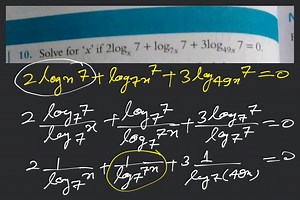 10. Solve for 'x' if 2logₓ 7 + log₇ₓ 7 + 3log₄₉ₓ 7 = 0.
2 logx 7 + log₇ₓ 7 + 3 log₄₉ₓ 7 = 0
2 log₇7/log₇x + log₇7/log₇7x + 3log₇7/log₇7 = 0
2 1/log₇x + 1/log₇7x + 3 1/log₇(49x) = 0